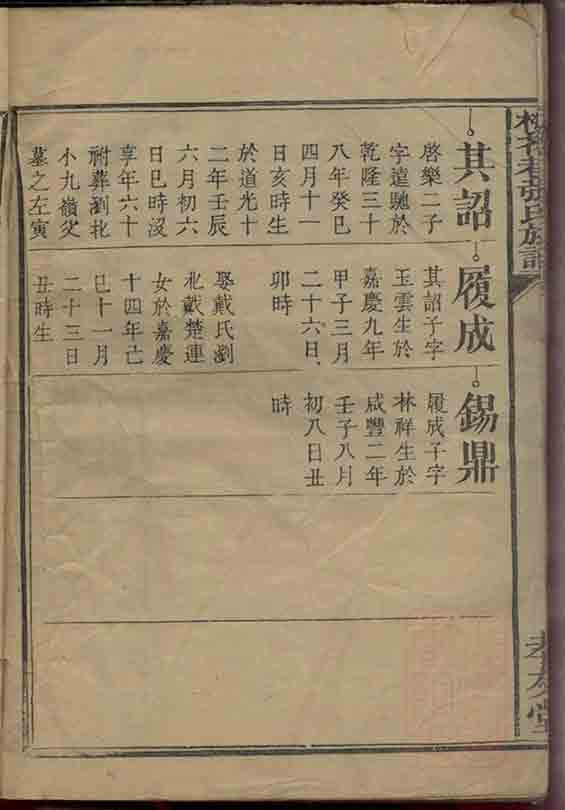 張氏族譜
其詔
啓樂二子
字遠馳於
乾隆三十
八年癸巳
四月十一
日亥時生
於道光十
二年壬辰
六月初六
日巳時沒
享年六十
祔葬瀏北
小九嶺父
墓之左寅
履成
其詔子字
玉雲生於
嘉慶九年
甲子三月
二十六日
卯時
娶戴氏瀏
北戴楚連
女於嘉慶
十四年己
巳十一月
二十三日
丑時生
錫鼎
履成子字
林祥生於
咸豐二年
壬子八月
初八日丑
時
孝友堂